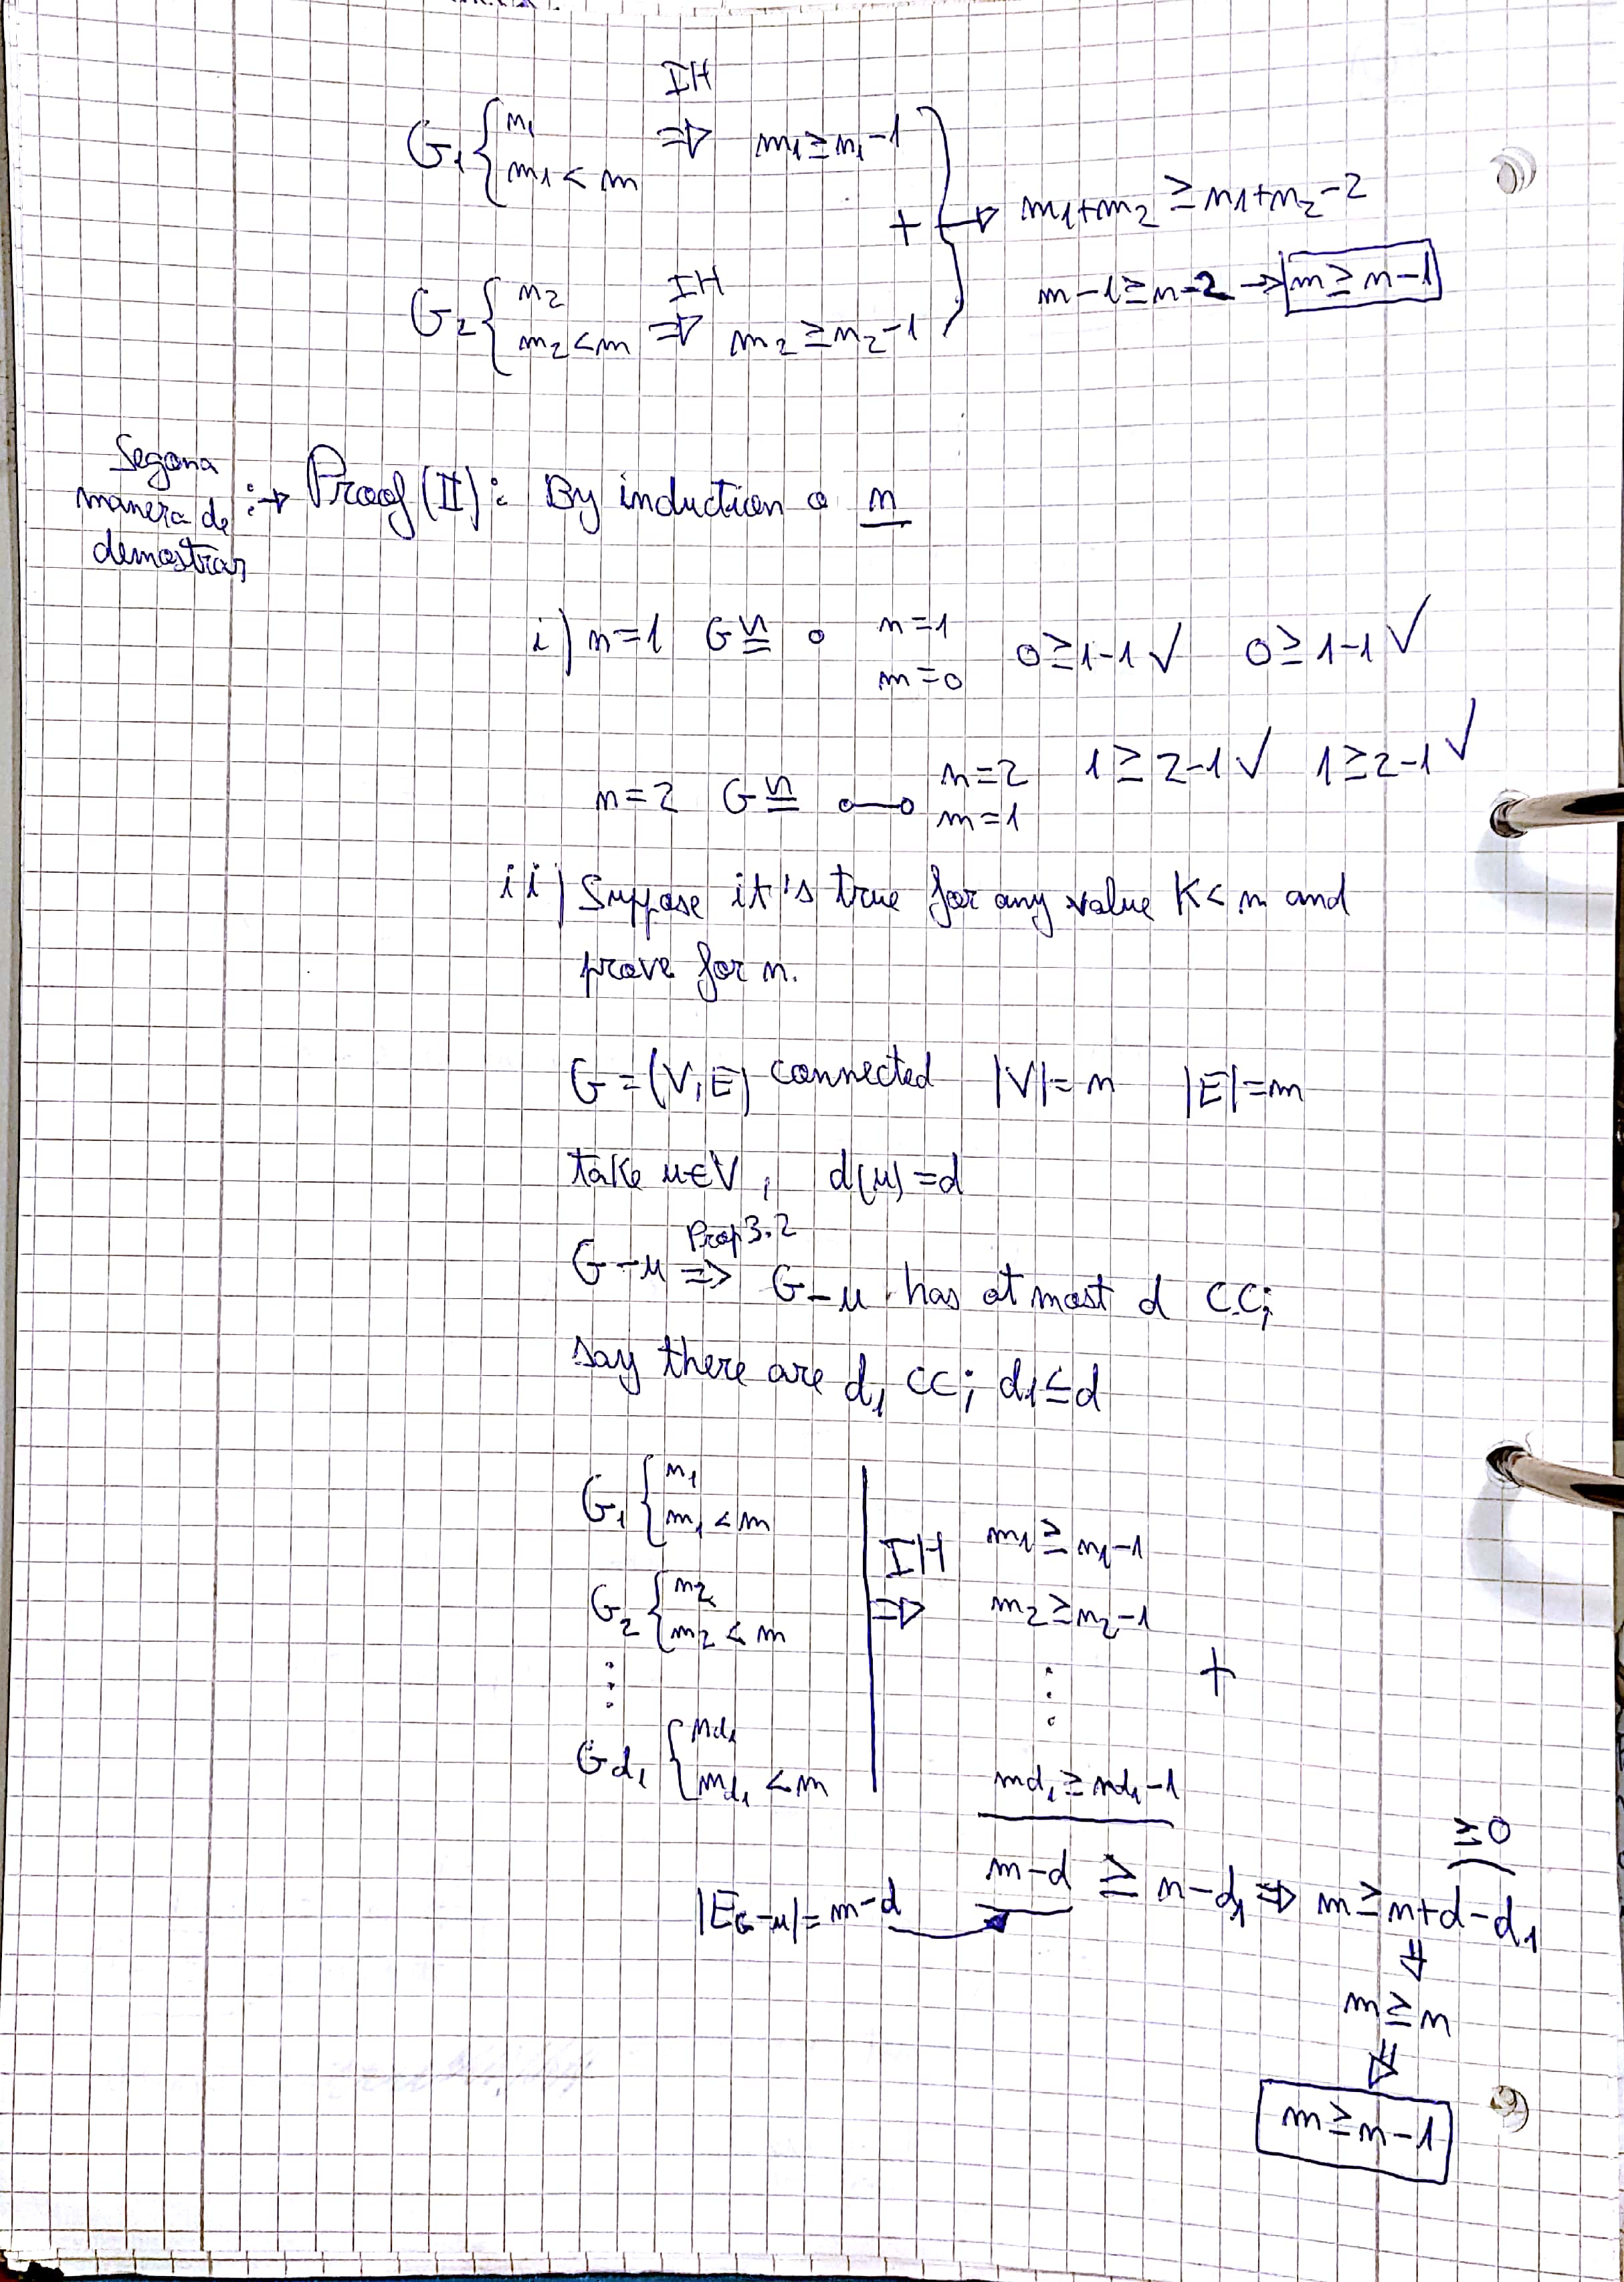 IH
G₁ { n₁
m₁ < m ⇒ m₁ ≥ n₁-1
+ → m₁+m₂ ≥ n₁+n₂-2
G₂ { n₂
m₂ < m ⇒ IH m₂ ≥ n₂-1
m-1 ≥ n-2 → m ≥ n-1
Segona
manera de
demostrar
:→ Proof (II): By induction o n
i) n=1 G ≅ o n=1 m=0 0≥1-1 ✓ 0≥1-1 ✓
n=2 G ≅ o—o n=2 m=1 1≥2-1 ✓ 1≥2-1 ✓
ii) Suppose it's true for any value K < n and
prove for n.
G=(V,E) connected |V|=n |E|=m
take u∈V, d(u)=d
G-u ⇒ Prop 3.2 G-u has at most d CC;
say there are d₁ CC; d₁≤d
G₁ { n₁
m₁ < m
IH ⇒ m₁ ≥ n₁-1
G₂ { n₂
m₂ < m
m₂ ≥ n₂-1
⋮ ⋮ +
G_d₁ { n_d₁
m_d₁ < m
m_d₁ ≥ n_d₁-1
≥0
|E_G-u| = m-d m-d ≥ n-d₁ ⇒ m ≥ n+d-d₁
⇓
m ≥ n
⇓
m ≥ n-1